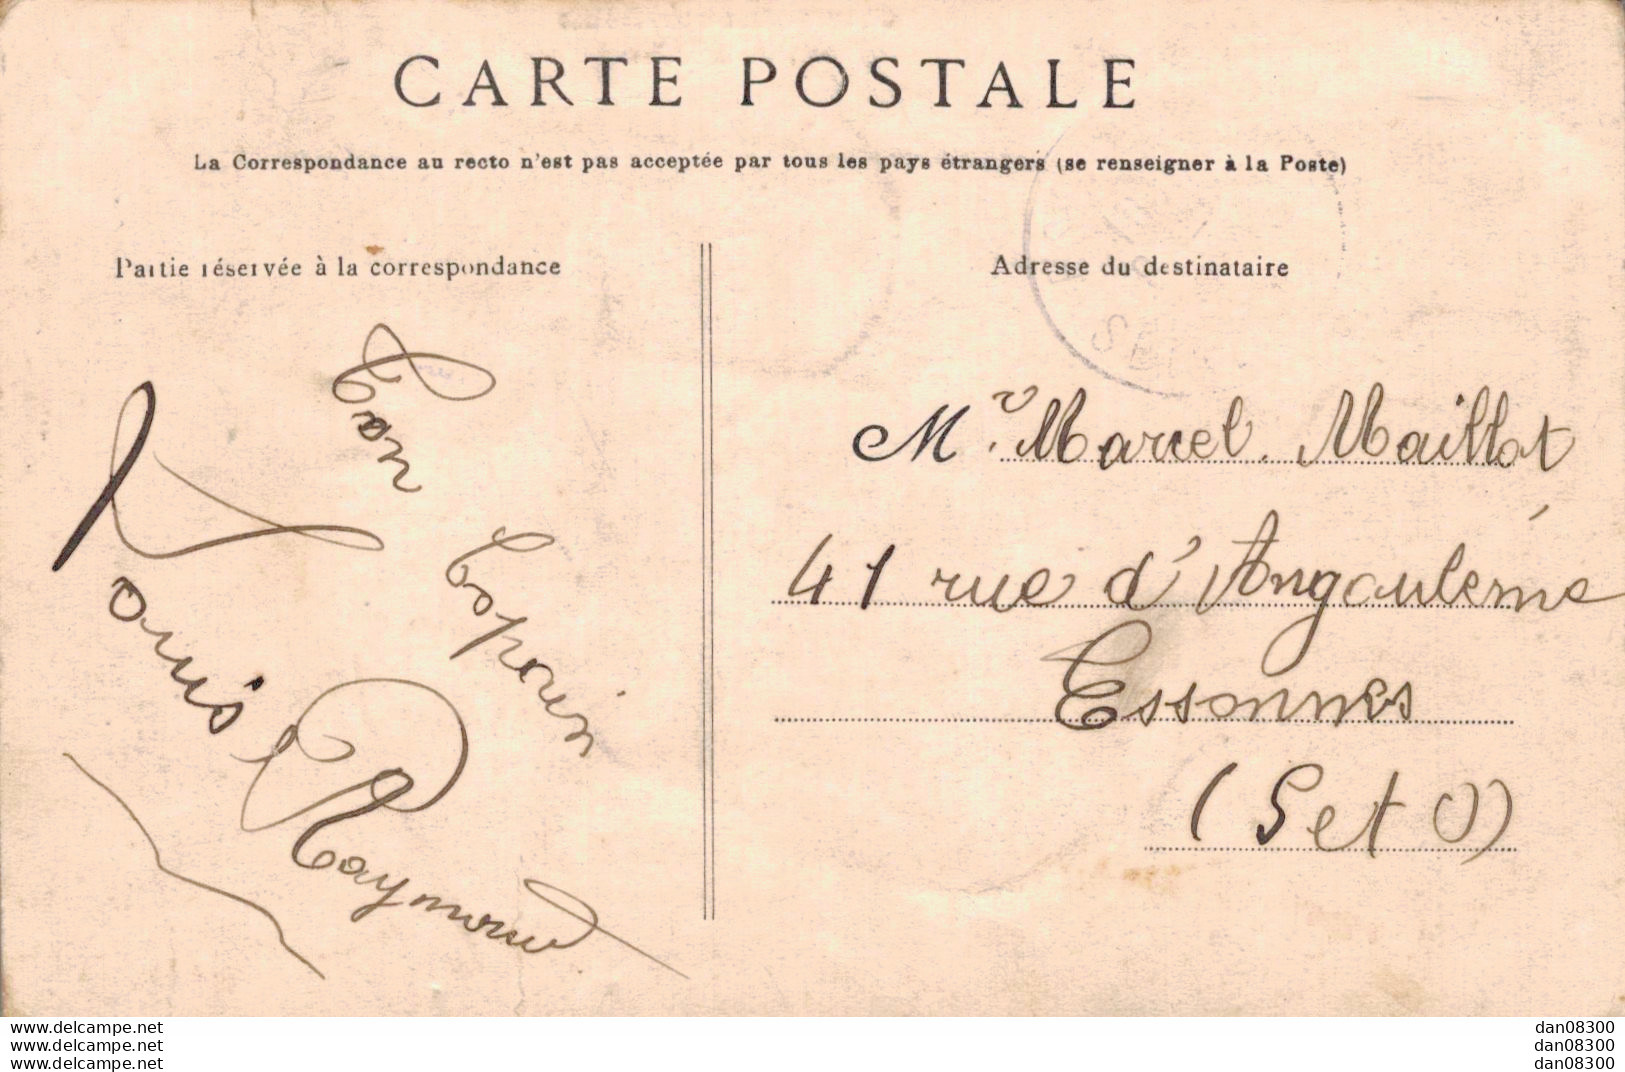 CARTE POSTALE
La Correspondance au recto n'est pas acceptée par tous les pays étrangers (se renseigner à la Poste)
Partie réservée à la correspondance
Ton
Copain
Louis
Raymond
Adresse du destinataire
Mr. Marcel Maillot
41 rue d'Angoulême
Essonnes
(S et O)
www.delcampe.net
www.delcampe.net
www.delcampe.net
dan08300
dan08300
dan08300